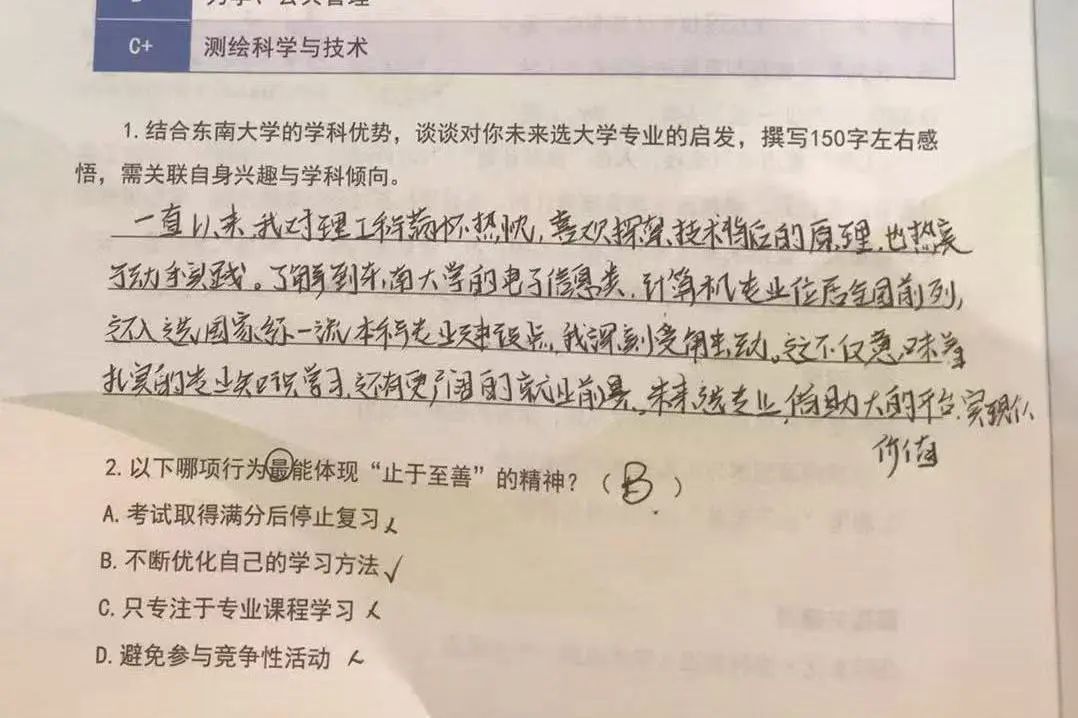 C+ 测绘科学与技术
1. 结合东南大学的学科优势，谈谈对你未来选大学专业的启发，撰写150字左右感
悟，需关联自身兴趣与学科倾向。
一直以来，我对理工科满怀热忱，喜欢探索技术背后的原理，也热衷
于动手实践。了解到东南大学的电子信息类、计算机专业位居全国前列，
还入选国家级一流本科专业建设点，我深刻受触动。这不仅意味着
扎实的专业知识学习，还有更广阔的就业前景。未来选专业，借助大的平台，实现
价值
2. 以下哪项行为最能体现“止于至善”的精神？（ B ）
A. 考试取得满分后停止复习
B. 不断优化自己的学习方法✓
C. 只专注于专业课程学习
D. 避免参与竞争性活动